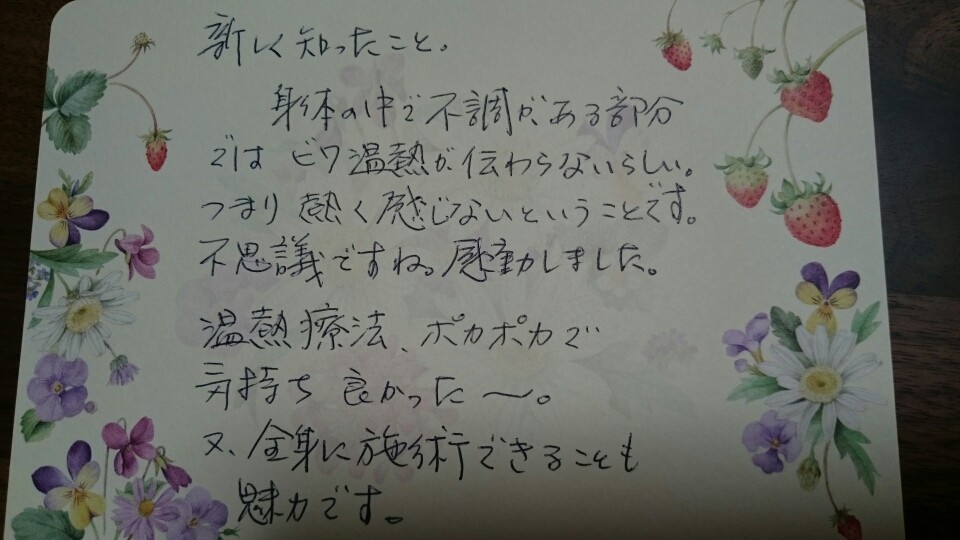 新しく知ったこと。
身体の中で不調がある部分
ではビワ温熱が伝わらないらしい。
つまり熱く感じないということです。
不思議ですね。感動しました。
温熱療法、ポカポカで
気持ち良かった〜。
又、全身に施術できることも
魅力です。